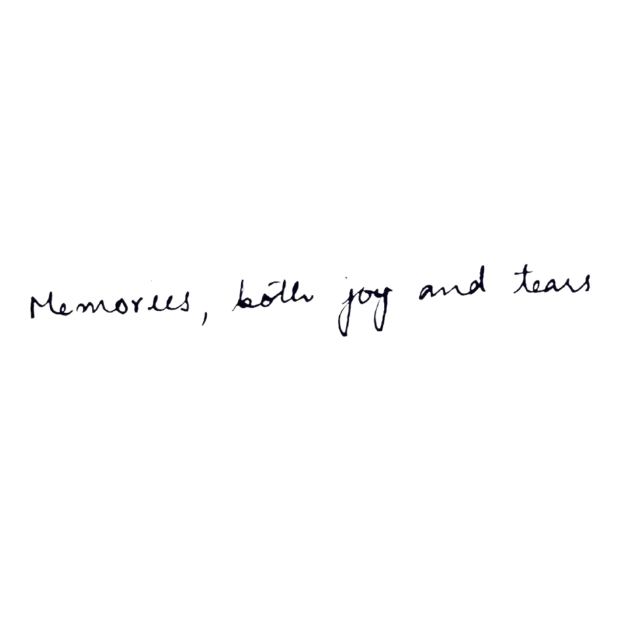 Memories, both joy and tears